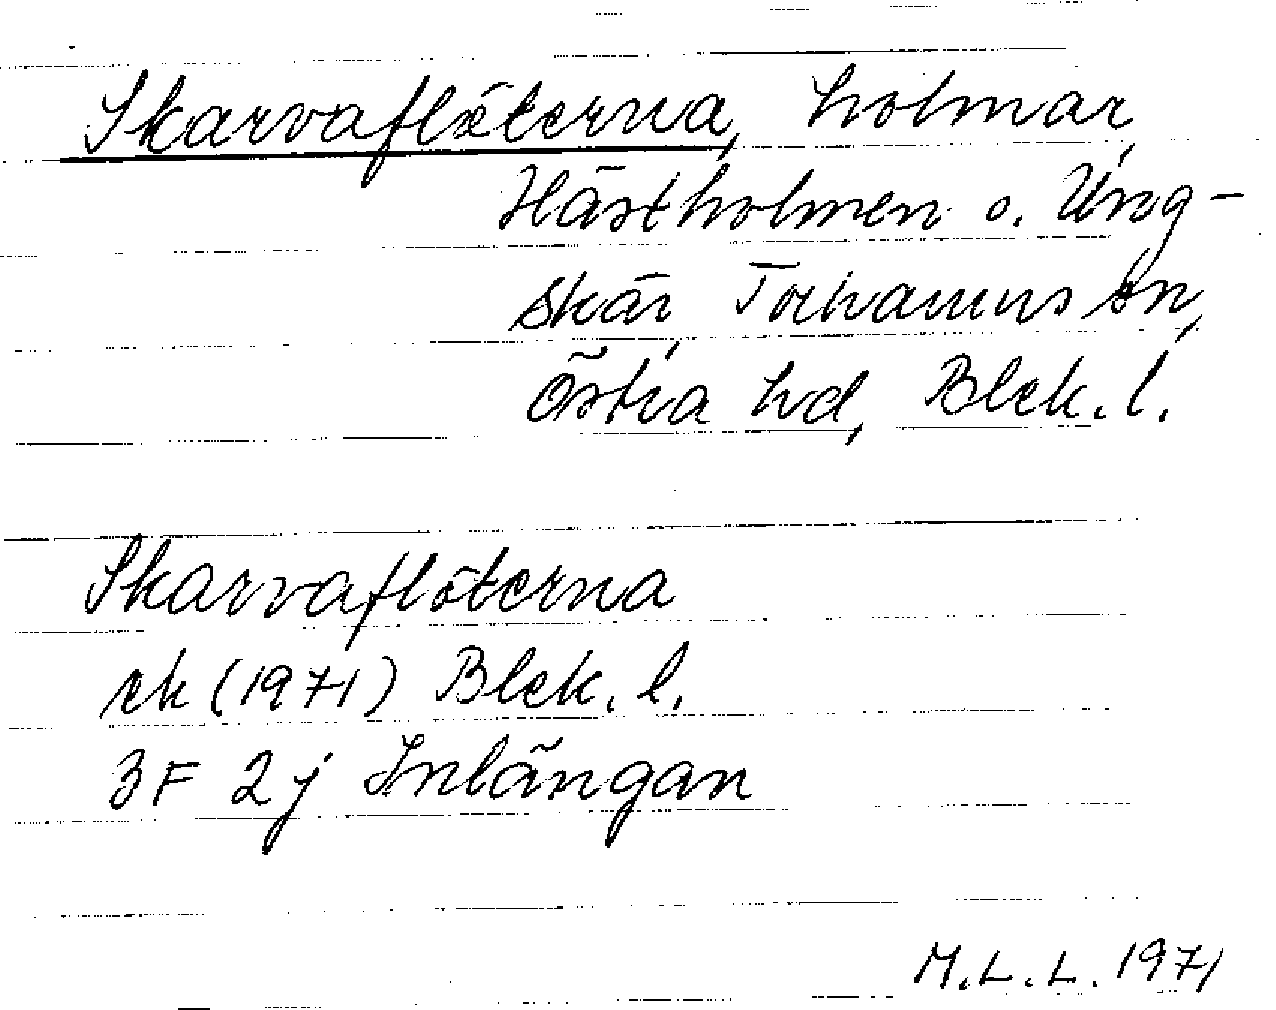 Skarvaflöterna, holmar,
Hästholmen o. Ung-
skär, Torhamns sn,
Östra hd, Blek. l.
Skarvaflöterna
ek (1971) Blek. l.
3F 2j Inlängan
M.L.L. 1971